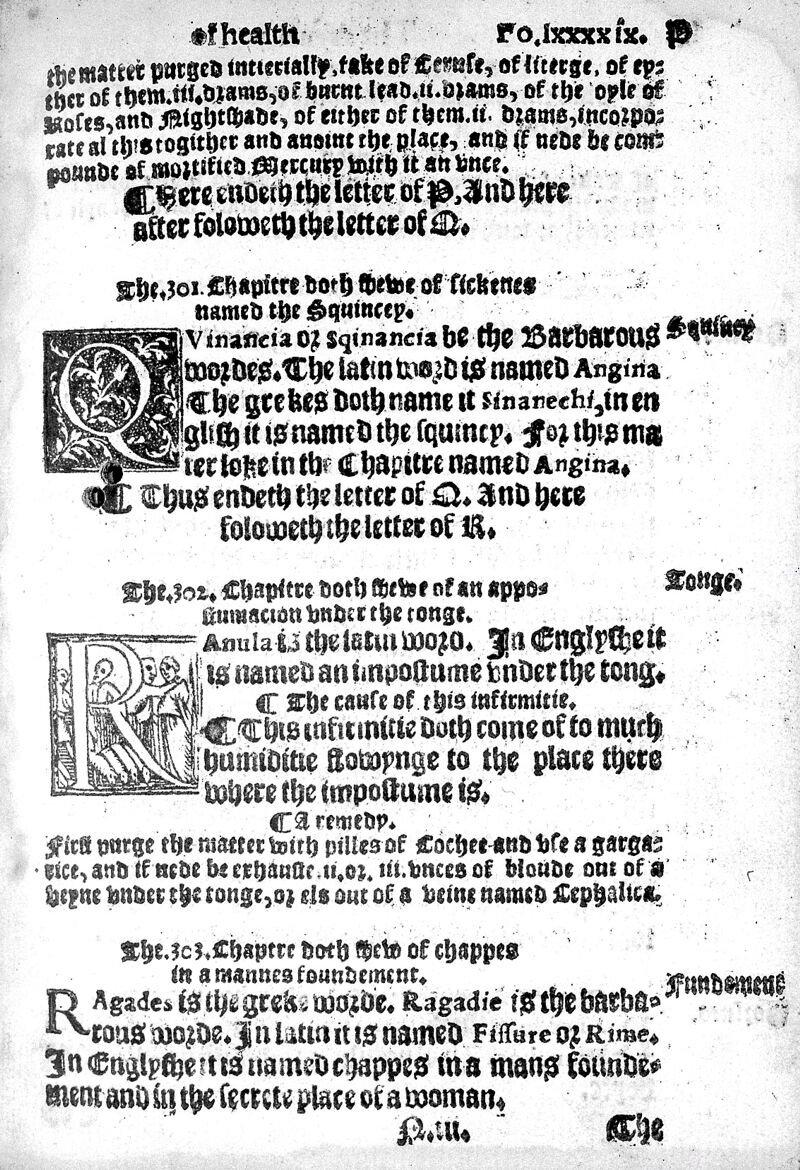 of health Fo.lxxxxix. P
the matter purged intierially, take of Ceruse, of literge, of ey-
ther of them.iii.drams, of burnt lead.ii.drams, of the oyle of
Roses, and Nightshade, of either of them.ii. drams, incorpo-
rate al this togither and anoint the place, and if nede be com-
pounde of mortified Mercury with it an vnce.
¶ Here endeth the letter of P, And here
after foloweth the letter of Q.
The.301.Chapitre doth shewe of sickenes
named the Squincey.
QVinancia or Sqinancia be the Barbarous
wordes. The latin word is named Angina
The grekes doth name it Sinanechi, in en
glish it is named the squincy. For this ma
ter loke in the Chapitre named Angina.
Squincy
¶ Thus endeth the letter of Q. And here
foloweth the letter of R.
The.302. Chapitre doth shewe of an appo-
stumacion vnder the tonge.
Tonge.
RAnula is the latin word. In Englyshe it
is named an impostume vnder the tong.
¶ The cause of this infirmitie.
¶ This infirmitie doth come of to much
humiditie flowynge to the place there
where the impostume is.
¶ A remedy.
First purge the matter with pilles of Cochee and vse a garga-
rice, and if nede be exhauste .ii.or. iii.vnces of bloude out of a
veyne vnder the tonge, or els out of a veine named Cephalica.
The.303.Chaptre doth shew of chappes
in a mannes foundement.
RAgades is the greke worde. Ragadie is the barba-
rous worde. In latin it is named Fissure or Rime.
In Englyshe it is named chappes in a mans founde-
ment and in the secrete place of a woman.
Fundement
N.iii. The